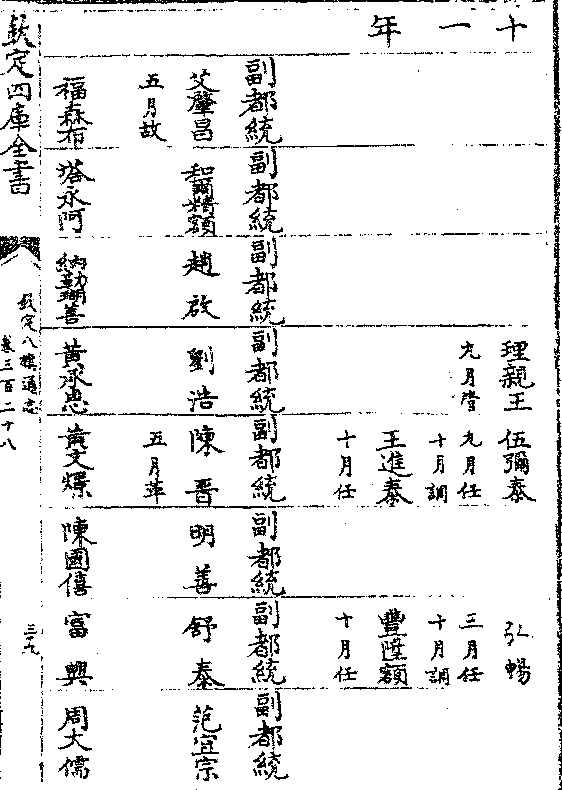 十一年
理親王 伍彌泰 弘暢
九月管 九月任 三月任
十月調 十月調
王進泰 豐陞額
十月任 十月任
副都統 副都統 副都統 副都統 副都統 副都統 副都統 副都統
艾肇昌 和爾精額 趙啟 劉浩 陳晋 明善 舒泰 范宜宗
五月故 五月革
福森布 塔永阿 納勒瑚善 黃承忠 黃文 陳國僖 富興 周大儒
欽定四庫全書
欽定八旗通志
卷三百二十八
三九